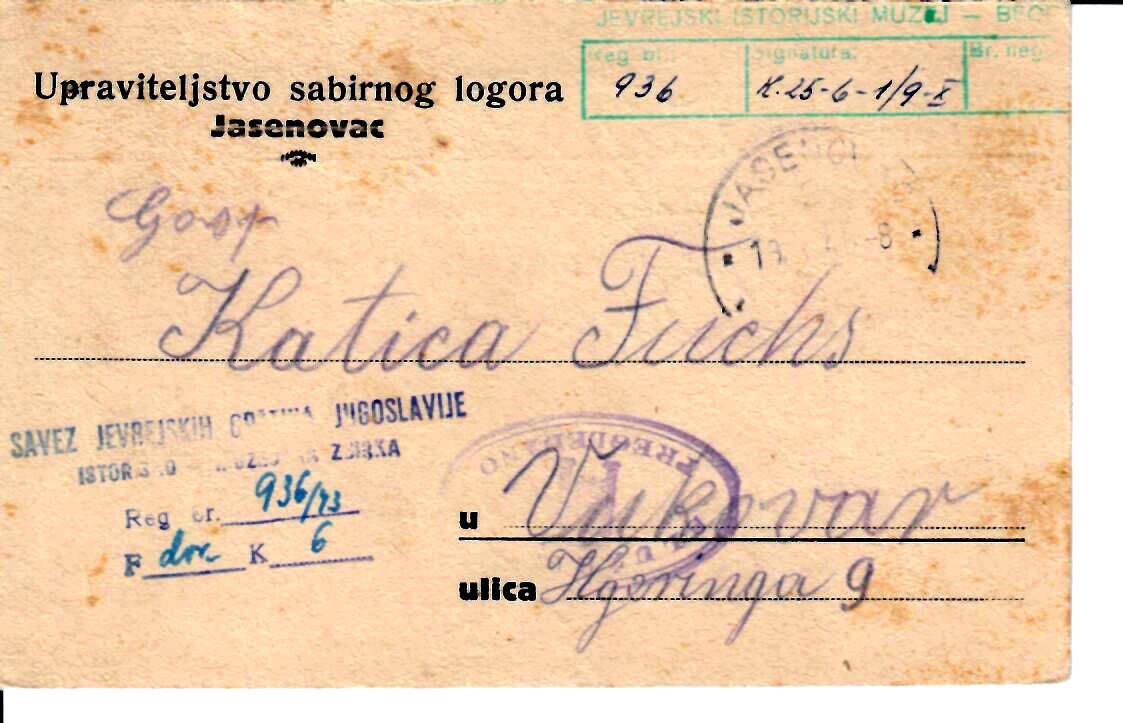 JEVREJSKI ISTORIJSKI MUZEJ — BEOG
Reg. br. Signatura: Br. neg.
936 K.25-6-1/9-X
Upraviteljstvo sabirnog logora
Jasenovac
JASENO
Gosp
Katica Fuchs
SAVEZ JEVREJSKIH JUGOSLAVIJE
ZBIRKA
Reg br. 936/43
F dok K 6
PREGLEDANO
u Vukovar
ulica 9